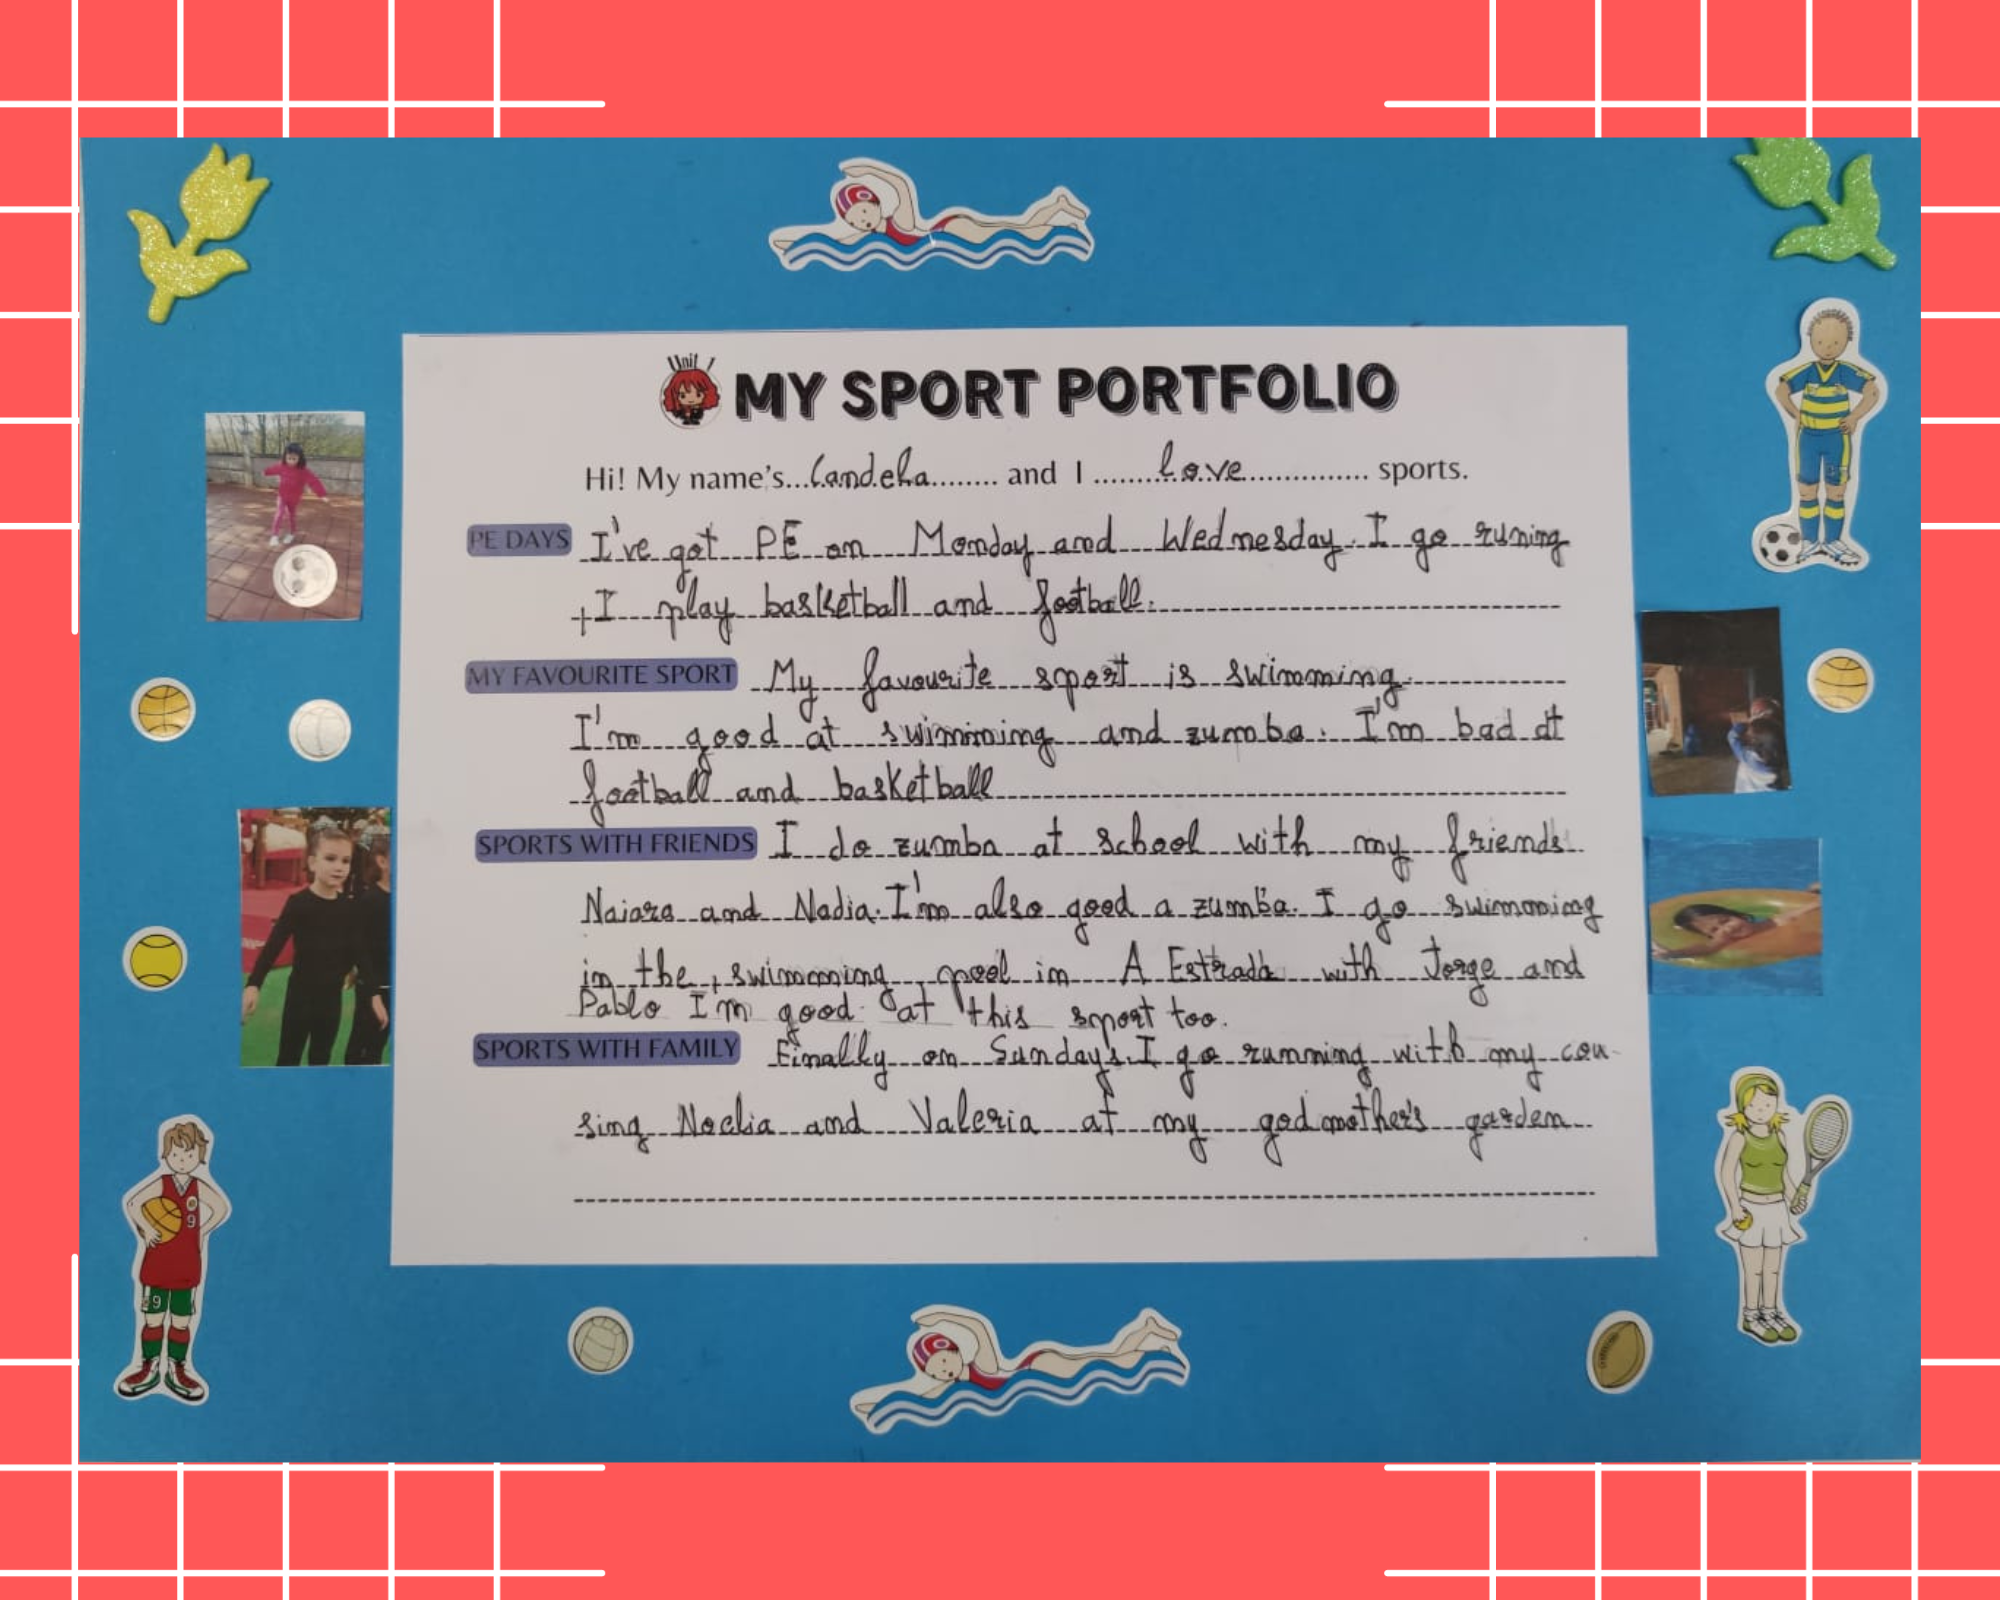 Unit 1
MY SPORT PORTFOLIO
Hi! My name's...Candela........ and I .......love.............. sports.
PE DAYS I've got PE on Monday and Wednesday. I go runing
+I play basketball and football.
MY FAVOURITE SPORT My favourite sport is swimming
I'm good at swimming and zumba. I'm bad at
football and basketball
SPORTS WITH FRIENDS I do zumba at school with my friends
Naiara and Nadia. I'm also good a zumba. I go swimming
in the swimming pool in A Estrada with Jorge and
Pablo I'm good at this sport too.
SPORTS WITH FAMILY Finally on Sunday's I go running with my cou-
sing Noelia and Valeria at my godmother's garden
9
9